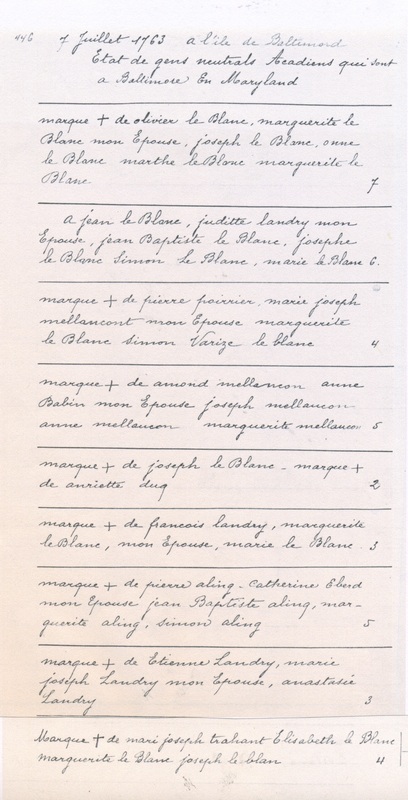 446 7 Juillet 1763 a l'ile de Baltimord
Etat de gens neutrals Acadiens qui sont
a Baltimore En Maryland
marque + de olivier le Blanc, marguerite le
Blanc mon Epouse, joseph le Blanc, onne
le Blanc marthe le Blanc marguerite le
Blanc 7
A jean le Blanc, juditte landry mon
Epouse, jean Baptiste le Blanc, josephe
le Blanc Simon le Blanc, marie le Blanc 6.
marque + de pierre poirrier, marie joseph
mellancont mon Epouse marguerite
le Blanc simon Varize le blanc 4
marque + de amond mellencon anne
Babin mon Epouse joseph mellancon
anne mellancon marguerite mellancon 5
marque + de joseph le Blanc - marque +
de anriette dug 2
marque + de francois landry, marguerite
le Blanc, mon Epouse, marie le Blanc 3
marque + de pierre aling - Catherine Ebed
mon Epouse jean Baptiste aling, mar-
guerite aling, simon aling 5
marque + de Etienne Landry, marie
joseph Landry mon Epouse, anastasie
Landry 3
Marque + de mari joseph trahant Elisabeth le Blanc
marguerite le Blanc joseph le blan 4